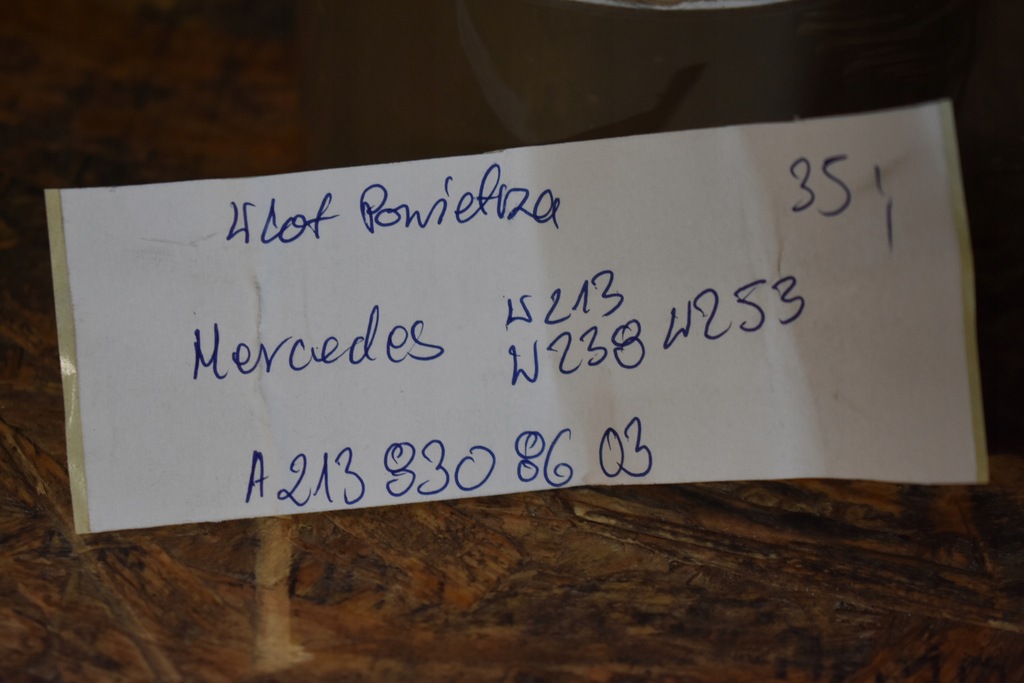 Wlot Powietrza 35,-
Mercedes W213
W238 W253
A 213 830 86 03